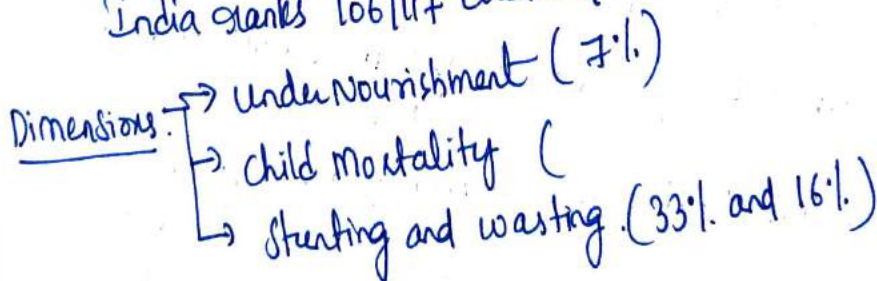 India ranks 106/117
Dimensions. → UnderNourishment (7%)
→ child Mortality (
→ Stunting and wasting. (33% and 16%)